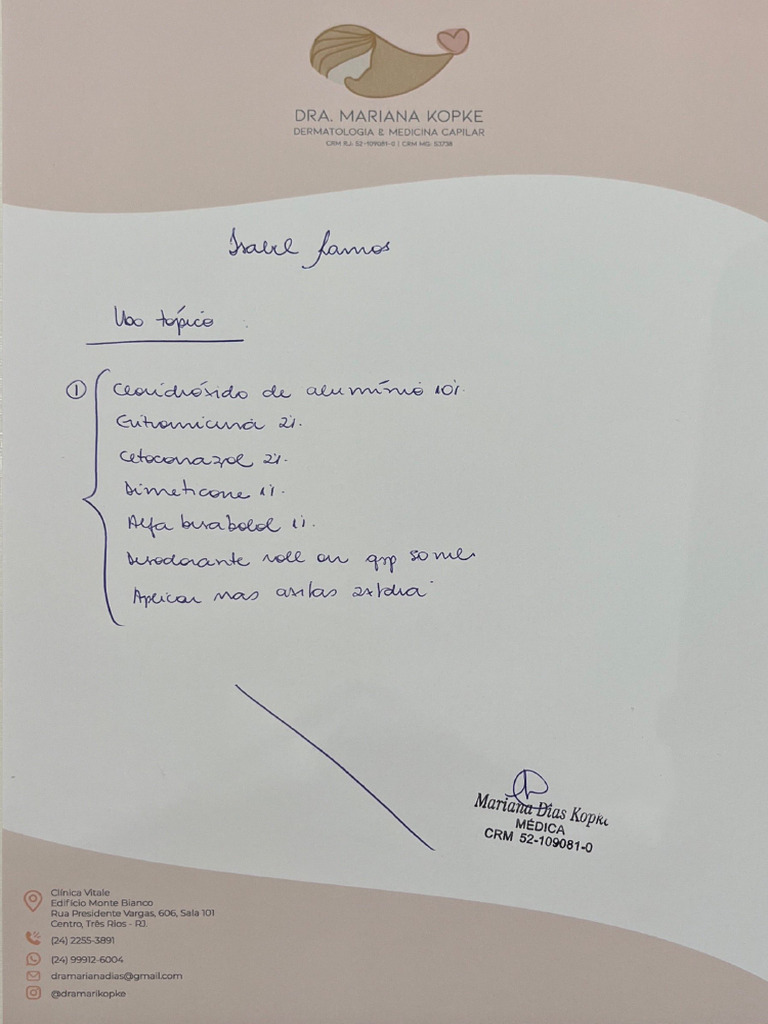 DRA. MARIANA KOPKE
DERMATOLOGIA & MEDICINA CAPILAR
CRM RJ: 52-109081-0 | CRM MG: 53738
Isabel Ramos
Uso tópico :
① Cloridróxido de alumínio 10%
Eritromicina 2%.
Cetoconazol 2%.
Dimeticone 1%.
Alfa bisabolol 1%.
Desodorante roll on qsp 50ml
Aplicar nas axilas 2x/dia
Mariana Dias Kopke
MÉDICA
CRM 52-109081-0
Clínica Vitale
Edifício Monte Bianco
Rua Presidente Vargas, 606, Sala 101
Centro, Três Rios - RJ.
(24) 2255-3891
(24) 99912-6004
dramarianadias@gmail.com
@dramarikopke